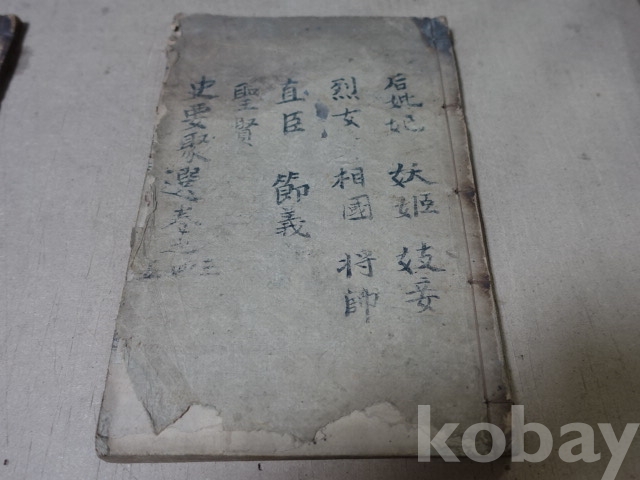 后妣妃 妖姬 妓妾
烈女 相國 将帥
直臣 節義
聖賢
史要聚選卷之
三
四
kobay